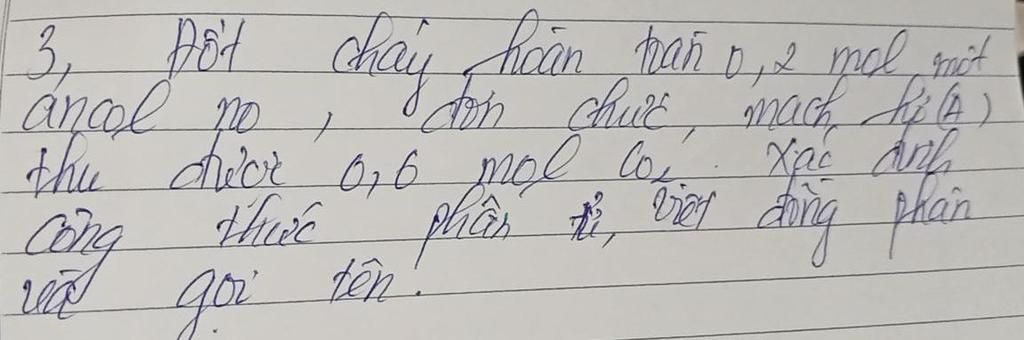 3, Đốt cháy hoàn toàn 0,2 mol một
ancol no, đơn chức, mạch hở (A)
thu được 0,6 mol CO₂. Xác định
công thức phân tử, viết đồng phân
và gọi tên.